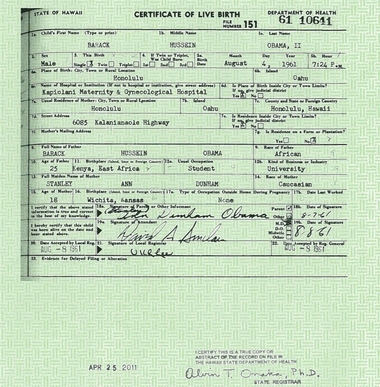 STATE OF HAWAII CERTIFICATE OF LIVE BIRTH DEPARTMENT OF HEALTH
FILE NUMBER 151 61 10641
1a. Child's First Name (Type or print) 1b. Middle Name 1c. Last Name
BARACK HUSSEIN OBAMA, II
2. Sex 3. This Birth 4. If Twin or Triplet, Was Child Born 5a. Birth Date Month Day Year 5b. Hour
Male Single Twin Triplet 1st 2nd 3rd August 4, 1961 7:24 P.M.
6a. Place of Birth: City, Town or Rural Location 6b. Island
Honolulu Oahu
6c. Name of Hospital or Institution (If not in hospital or institution, give street address) 6d. Is Place of Birth Inside City or Town Limits? If no, give judicial district
Kapiolani Maternity & Gynecological Hospital Yes No
7a. Usual Residence of Mother: City, Town or Rural Location 7b. Island 7c. County and State or Foreign Country
Honolulu Oahu Honolulu, Hawaii
7d. Street Address 7e. Is Residence Inside City or Town Limits? If no, give judicial district
6085 Kalanianaole Highway Yes No
7f. Mother's Mailing Address 7g. Is Residence on a Farm or Plantation?
Yes No
8. Full Name of Father 9. Race of Father
BARACK HUSSEIN OBAMA African
10. Age of Father 11. Birthplace (Island, State or Foreign Country) 12a. Usual Occupation 12b. Kind of Business or Industry
25 Kenya, East Africa Student University
13. Full Maiden Name of Mother 14. Race of Mother
STANLEY ANN DUNHAM Caucasian
15. Age of Mother 16. Birthplace (Island, State or Foreign Country) 17a. Type of Occupation Outside Home During Pregnancy 17b. Date Last Worked
18 Wichita, Kansas None
I certify that the above stated information is true and correct to the best of my knowledge. 18a. Signature of Parent or Other Informant Parent Other 18b. Date of Signature
Ann Dunham Obama 8-7-61
I hereby certify that this child was born alive on the date and hour stated above. 19a. Signature of Attendant M.D. D.O. Midwife Other 19b. Date of Signature
David A. Sinclair 8 8 61
20. Date Accepted by Local Reg. 21. Signature of Local Registrar 22. Date Accepted by Reg. General
AUG -8 1961 U K L Lee AUG -8 1961
23. Evidence for Delayed Filing or Alteration
APR 25 2011
I CERTIFY THIS IS A TRUE COPY OR
ABSTRACT OF THE RECORD ON FILE IN
THE HAWAII STATE DEPARTMENT OF HEALTH
Alvin T. Onaka, Ph.D.
STATE REGISTRAR